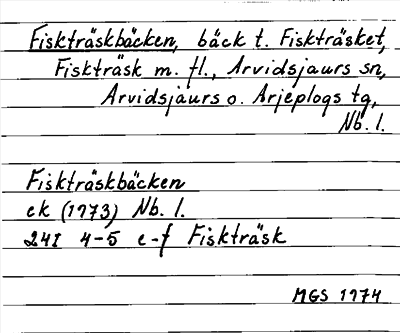 Fiskträskbäcken, bäck t. Fiskträsket,
Fiskträsk m. fl., Arvidsjaurs sn,
Arvidsjaurs o. Arjeplogs tg,
Nb. l.
Fiskträskbäcken
ek (1973) Nb. l.
24I 4-5 e-f Fiskträsk
MGS 1974